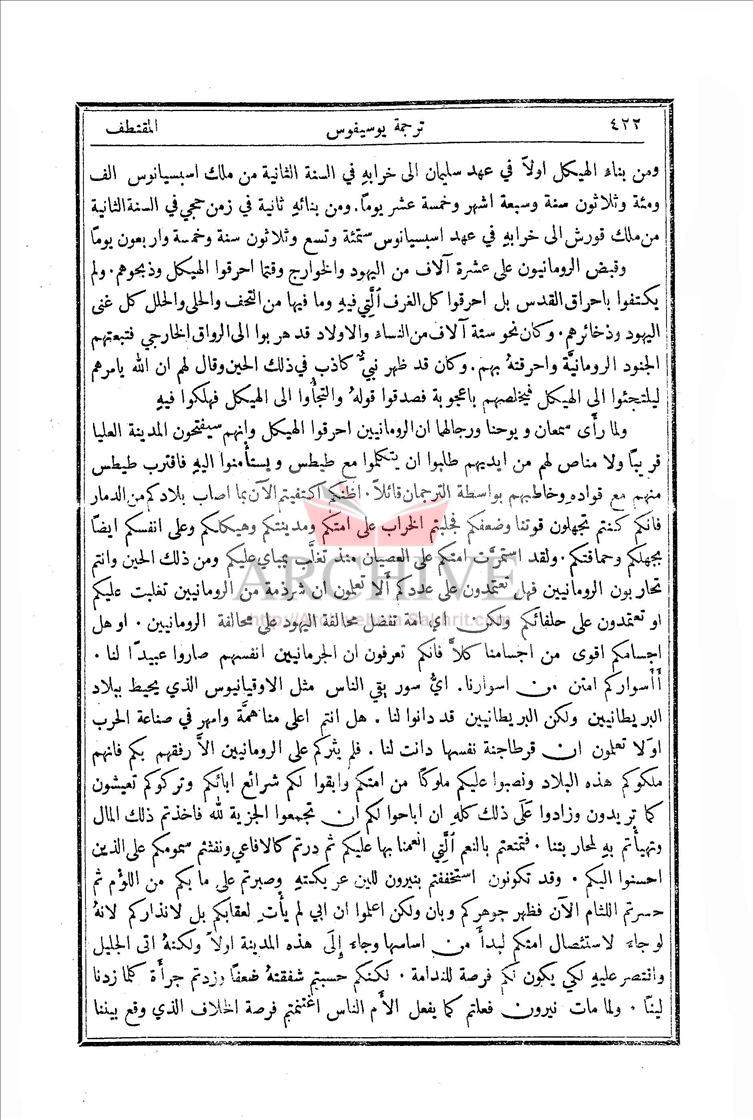 ٤٢٢ ترجمة يوسيفوس المقتطف
ومن بناء الهيكل اولاً في عهد سليمان الى خرابهِ في السنة الثانية من ملك اسبسيانوس الف
ومئة وثلاثون سنة وسبعة اشهر وخمسة عشر يومًا. ومن بنائهِ ثانية في زمن حجي في السنة الثانية
من ملك قورش الى خرابهِ في عهد اسبسيانوس ستمئة وتسع وثلاثون سنة وخمسة واربعون يومًا
وقبض الرومانيون على عشرة آلاف من اليهود والخوارج وقتما احرقوا الهيكل وذبحوهم. ولم
يكتفوا باحراق القدس بل احرقوا كل الغرف الَّتي فيهِ وما فيها من التحف والحلى والحلل كل غنى
اليهود وذخائرهم. وكان نحو ستة آلاف من النساء والاولاد قد هربوا الى الرواق الخارجي فتبعتهم
الجنود الرومانيَّة واحرقتهُ بهم. وكان قد ظهر نبيٌّ كاذب في ذلك الحين وقال لهم ان الله يامرهم
ليلتجئوا الى الهيكل فيخلصهم باعجوبة فصدقوا قولهُ والتجأُوا الى الهيكل فهلكوا فيهِ
ولما رأَى سمعان ويوحنا ورجالها ان الرومانيين احرقوا الهيكل وانهم سيفتحون المدينة العليا
قريبًا ولا مناص لهم من ايديهم طلبوا ان يتكلموا مع طيطس ويستأْمنوا اليهِ فاقترب طيطس
منهم مع قواده وخاطبهم بواسطة الترجمان قائلاً. اظنكم اكتفيتم الآن بما اصاب بلادكم من الدمار
فانكم كنتم تجهلون قوتنا وضعفكم فجلبتم الخراب على امتكم ومدينتكم وهيكلكم وعلى انفسكم ايضًا
بجهلكم وحماقتكم. ولقد استمرَّت امتكم على العصيان منذ تغلَّب بمباي عليكم ومن ذلك الحين وانتم
تحاربون الرومانيين فهل تعتمدون على عددكم أَلا تعلمون ان شرذمة من الرومانيين تغلبت عليكم
او تعتمدون على حلفائكم ولكن اي امة تفضل محالفة اليهود على محالفة الرومانيين. او هل
اجسامكم اقوى من اجسامنا كلاَّ فانكم تعرفون ان الجرمانيين انفسهم صاروا عبيدًا لنا.
أَأَسواركم امتن من اسوارنا. ايُّ سور بقي الناس مثل الاوقيانوس الذي يحيط ببلاد
البريطانيين ولكن البريطانيين قد دانوا لنا. هل انتم اعلى منا همَّة وامهر في صناعة الحرب
اوَلا تعلمون ان قرطاجنة نفسها دانت لنا. فلم يثركم على الرومانيين الاَّ رفقهم بكم فانهم
ملكوكم هذه البلاد ونصبوا عليكم ملوكًا من امتكم وابقوا لكم شرائع ابائكم وتركوكم تعيشون
كما تريدون وزادوا عَلَى ذلك كلهِ ان اباحوا لكم ان تجمعوا الجزية لله فاخذتم ذلك المال
وتهيأْتم بهِ لمحاربتنا. فتمتعتم بالنعم الَّتي انعمنا بها عليكم ثم درتم كالافاعي ونفثتم سمومكم على الذين
احسنوا اليكم. وقد تكونون استخففتم بنيرون للين عريكتهِ وصبرتم على ما بكم من اللؤم ثم
حسرتم اللثام الآن فظهر جوهركم وبان ولكن اعلموا ان ابي لم يأْتِ لعقابكم بل لانذاركم لانهُ
لو جاء لاستئصال امتكم لبدأَ من اساسها وجاء إِلَى هذه المدينة اولاً ولكنهُ اتى الجليل
وانتصر عليهِ لكي يكون لكم فرصة للندامة. لكنكم حسبتم شفقتهُ ضعفًا وزدتم جرأَة كلما زدنا
لينًا. ولما مات نيرون فعلتم كما يفعل الأم الناس اغتنمتم فرصة الخلاف الذي وقع بيننا
ARCHIVE